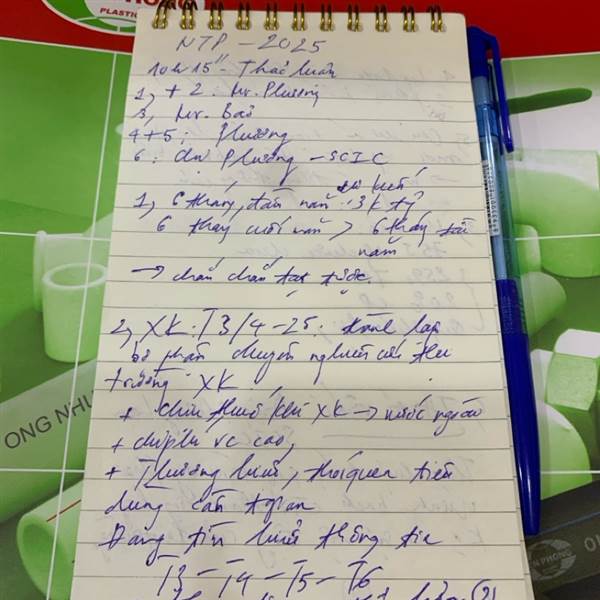 PLASTIC
NTP - 2025
10h15" - Thảo luận
1, + 2: Mr. Phương
3, Mr. Bảo
4+5: Phương
6: chị Phương - SCIC
dự kiến
1, 6 tháng đầu năm 3k tỷ
6 tháng cuối năm > 6 tháng đầu
năm
→ chắc chắn đạt được.
2, XK: T3/4-25: thành lập
bộ phận chuyên nghiên cứu thị
trường XK
+ chịu thuế khi XK → nước ngoài
+ chi phí vc cao,
+ Thương hiệu, thói quen tiêu
dùng cần t.gian
Đang tìm hiểu thông tin
T3 - T4 - T5 - T6
ONG NHỰ
N PHONG